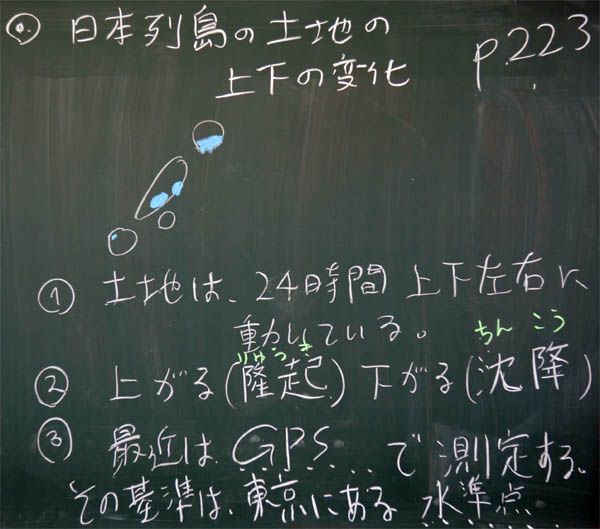 ◎. 日本列島の土地の
上下の変化
p.223
① 土地は、24時間 上下左右に
動いている。
りゅうき
ちん こう
② 上がる(隆起)下がる(沈降)
③ 最近は GPS で測定する。
その基準は、東京にある 水準点